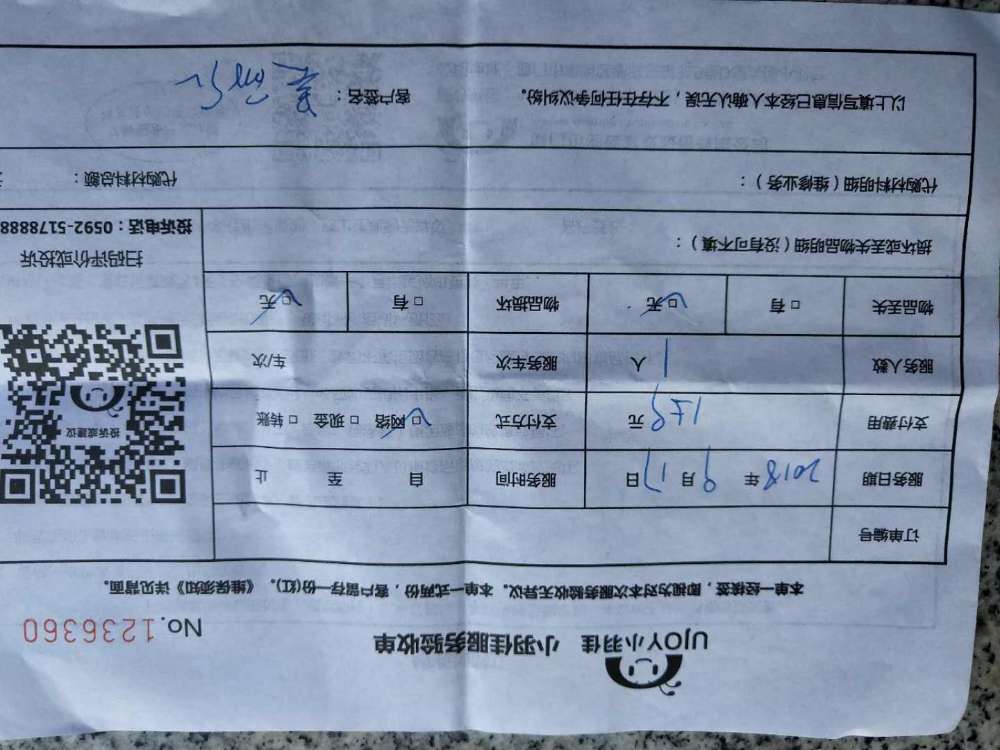 UJOY小羽佳 小羽佳服务验收单
No.1236360
本单一经接签，即视为对本次服务验收无异议。本单一式两份，客户留存一份(红)。《维保须知》详见背面。
订单编号
服务日期 2018年 9月 17日 服务时间 自 至 止
支付费用 元 支付方式 □网络 □现金 □转账
服务人数 1 人 服务车次 车/次
物品丢失 □有 □无 物品损坏 □有 □无
损坏或丢失物品明细（没有可不填）：
代购材料明细（维修业务）： 代购材料总额：
以上填写信息已经本人确认无误，不存在任何争议纠纷。 客户签名：
投诉或建议
扫码评价或投诉
投诉电话：0592-5178888